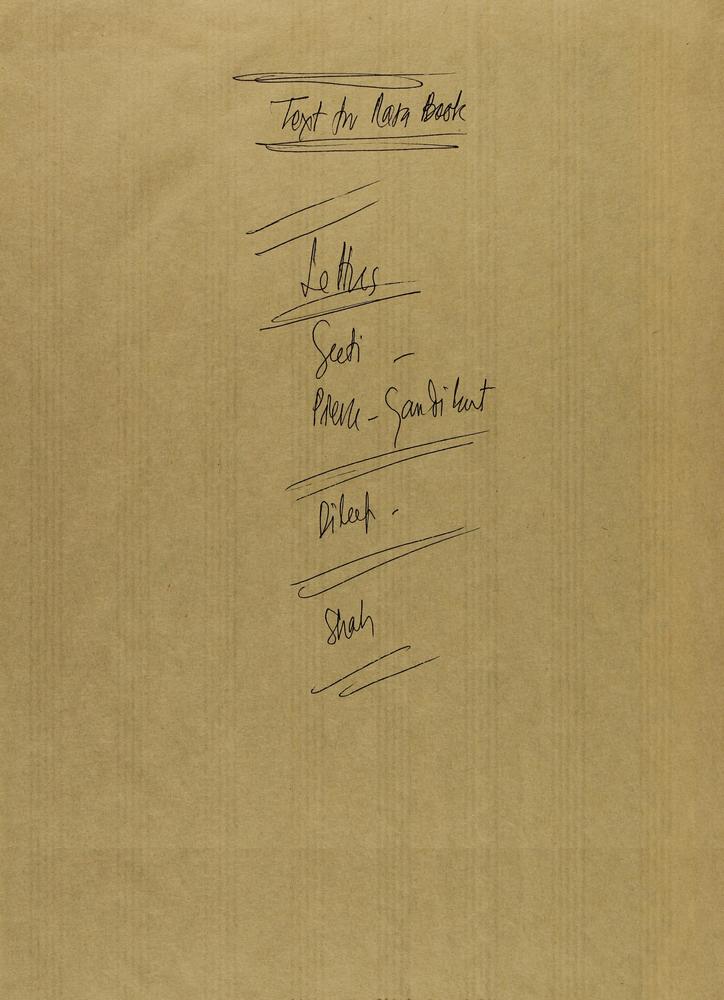 Text for Raza Book
Letters
Geeti -
Pierre - Gaudibert
Dileep -
Shah